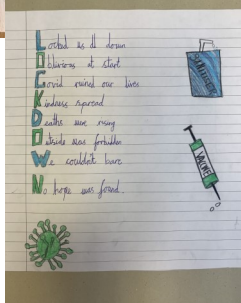 Locked us all down
Oblivious at start
Covid ruined our lives
Kindness spread
Deaths were rising
Outside was forbidden
We couldn't bare
No hope was found.
VACCINE